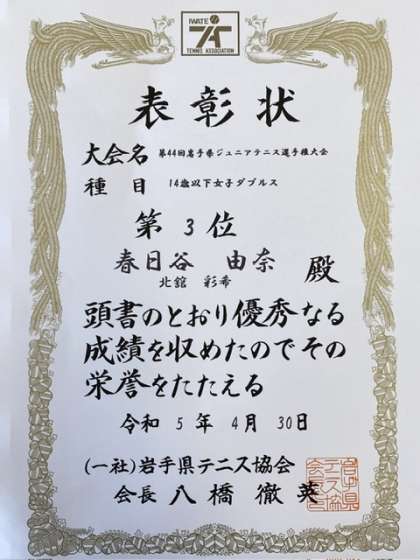 IWATE
TENNIS ASSOCIATION
表彰状
大会名 第44回岩手県ジュニアテニス選手権大会
種目 14歳以下女子ダブルス
第3位
春日谷 由奈 殿
北舘 彩希
頭書のとおり優秀なる
成績を収めたのでその
栄誉をたたえる
令和 5 年 4 月 30日
(一社)岩手県テニス協会
会長 八橋 徹英